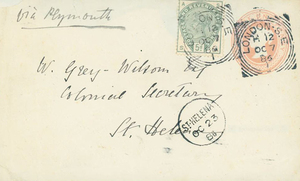 via Plymouth
LONDON·S.E
K 12
OC 7
85
W. Grey-Wilson Esq
Colonial Secretary
St. Helena
ST. HELENA
OC 23
85